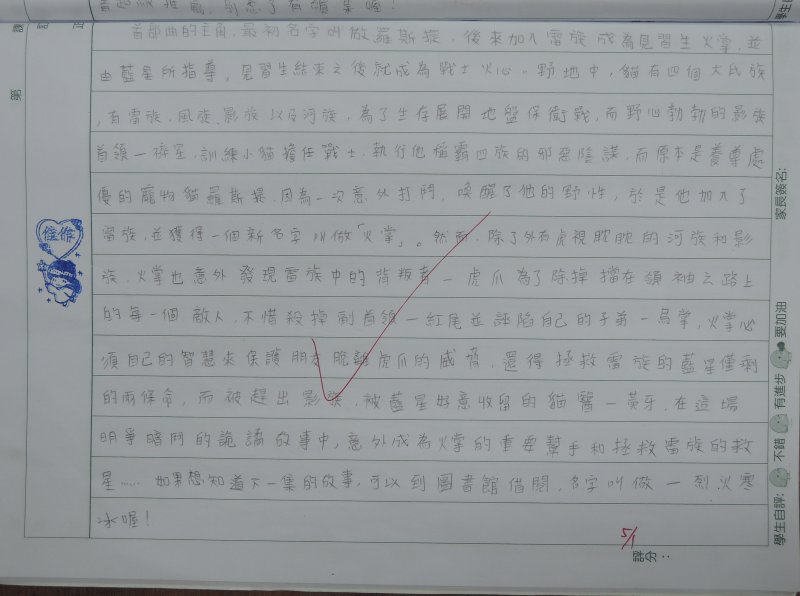 首部曲的主角，最初名字叫做羅斯提，後來加入雷族成為見習生火掌，並
由藍星所指導，見習生結束之後就成為戰士火心。野地中，貓有四個大氏族
，有雷族、風族、影族以及河族，為了生存展開地盤保衛戰，而野心勃勃的影族
首領—碎星，訓練小貓擔任戰士，執行他稱霸四族的邪惡陰謀，而原本是養尊處
優的寵物貓羅斯提，因為一次意外打鬥，喚醒了他的野性，於是他加入了
雷族，並獲得一個新名字叫做「火掌」。然而，除了外有虎視眈眈的河族和影
族，火掌也意外發現雷族中的背叛者—虎爪為了除掉擋在領袖之路上
的每一個敵人，不惜殺掉副首領—紅尾並誣陷自己的子弟—烏掌，火掌必
須自己的智慧來保護朋友脫離虎爪的威脅，還得拯救雷族的藍星僅剩
的兩條命，而被趕出影族，被藍星好意收留的貓醫—黃牙，在這場
明爭暗鬥的詭譎故事中，意外成為火掌的重要幫手和拯救雷族的救
星……如果想知道下一集的故事，可以到圖書館借閱，名字叫做—烈火寒
冰喔！
佳作
家長簽名：
學生自評： 不錯 有進步 要加油
評分：
5/1
第